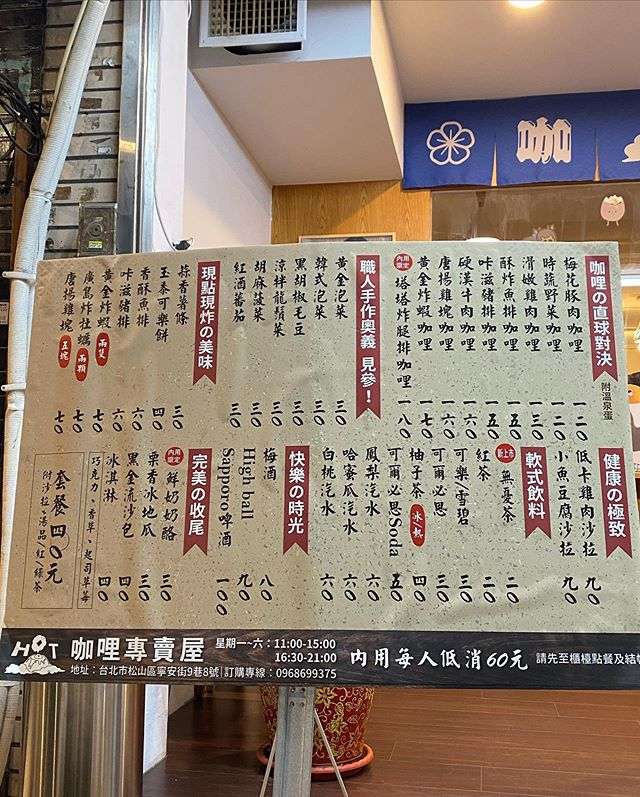 咖
咖哩の直球對決
附溫泉蛋
梅花豚肉咖哩 一二〇
時蔬野菜咖哩 一二〇
滑嫩雞肉咖哩 一三〇
酥炸魚排咖哩 一五〇
咔滋豬排咖哩 一五〇
硬漢牛肉咖哩 一六〇
唐揚雞塊咖哩 一六〇
黃金炸蝦咖哩 一七〇
內用限定 塔塔炸腿排咖哩 一八〇
職人手作奧義 見參！
黃金泡菜 三〇
韓式泡菜 三〇
黑胡椒毛豆 三〇
涼拌龍鬚菜 三〇
胡麻菠菜 三〇
紅酒番茄 三〇
現點現炸の美味
蒜香薯條 三〇
可樂餅 四〇
香酥魚排 六〇
咔滋豬排 六〇
黃金炸蝦 兩隻 七〇
廣島炸牡蠣 兩顆 七〇
唐揚雞塊 五塊 七〇
健康の極致
低卡雞肉沙拉 九〇
小魚豆腐沙拉 九〇
軟式飲料
新上市 無憂茶 二〇
紅茶 二〇
可樂/雪碧 三〇
柚子茶 冰/熱 四〇
可爾必思Soda 五〇
鳳梨汽水 六〇
哈蜜瓜汽水 六〇
白桃汽水 六〇
快樂の時光
梅酒 八〇
High ball 九〇
Sapporo啤酒 一〇〇
完美の收尾
內用限定 鮮奶奶酪 三〇
栗香冰地瓜 三〇
黑金流沙包 四〇
冰淇淋 四〇
巧克力、香草、起司草莓
套餐四〇元
附沙拉、湯品/紅/綠茶
HOT 咖哩專賣屋 星期一~六：11:00-15:00
16:30-21:00
地址：台北市松山區寧安街9巷8號|訂購專線：0968699375
內用每人低消60元 請先至櫃檯點餐及結